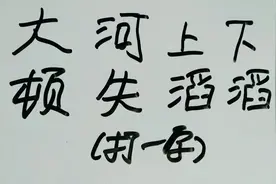 大河上下
顿失滔滔
(打一字)